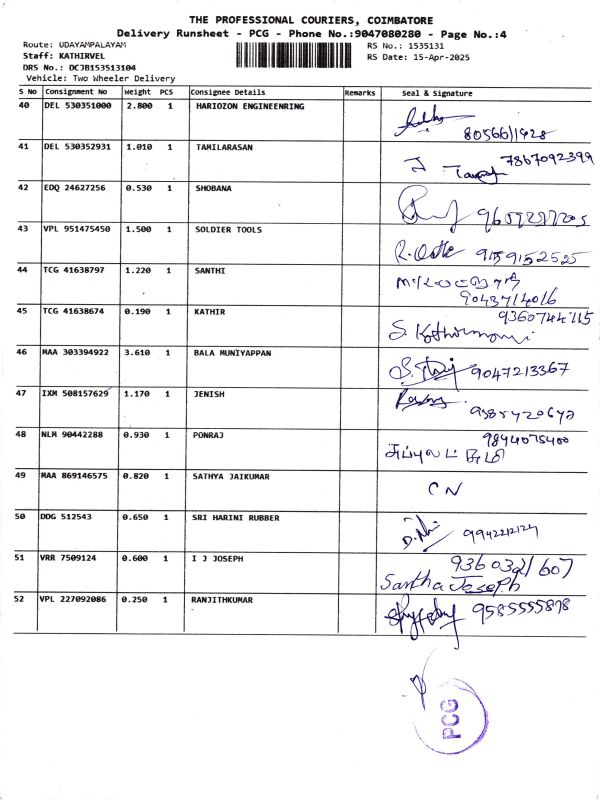 THE PROFESSIONAL COURIERS, COIMBATORE
Delivery Runsheet - PCG - Phone No.:9047080280 - Page No.:4
Route: UDAYAMPALAYAM RS No.: 1535131
Staff: KATHIRVEL RS Date: 15-Apr-2025
DRS No.: DCJB153513104
Vehicle: Two Wheeler Delivery
S No Consignment No Weight PCS Consignee Details Remarks Seal & Signature
40 DEL 530351000 2.800 1 HARIOZON ENGINEENRING
8056611928
41 DEL 530352931 1.010 1 TAMILARASAN 7867092399
42 EDQ 24627256 0.530 1 SHOBANA
43 VPL 951475450 1.500 1 SOLDIER TOOLS
9159152525
44 TCG 41638797 1.220 1 SANTHI
9043714016
45 TCG 41638674 0.190 1 KATHIR 9360744115
S. Kathirmani
46 MAA 303394922 3.610 1 BALA MUNIYAPPAN
9047213367
47 IXM 508157629 1.170 1 JENISH
48 NLM 90442288 0.930 1 PONRAJ 9844075400
49 MAA 869146575 0.820 1 SATHYA JAIKUMAR
CN
50 DDG 512543 0.650 1 SRI HARINI RUBBER
51 VRR 7509124 0.600 1 I J JOSEPH 9360321607
Santha Joseph
52 VPL 227092086 0.250 1 RANJITHKUMAR 9585555878
PCG